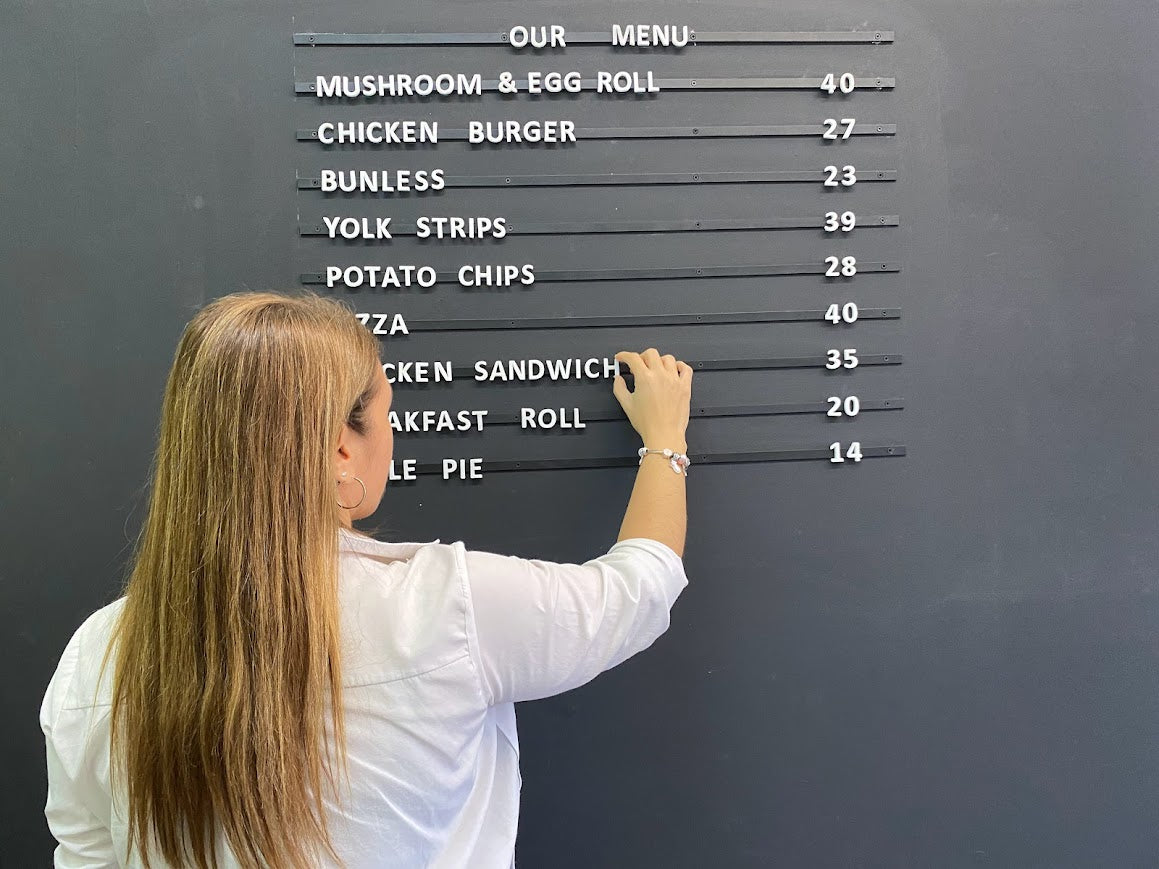 OUR MENU
MUSHROOM & EGG ROLL 40
CHICKEN BURGER 27
BUNLESS 23
YOLK STRIPS 39
POTATO CHIPS 28
ZZA 40
CKEN SANDWICH 35
AKFAST ROLL 20
LE PIE 14